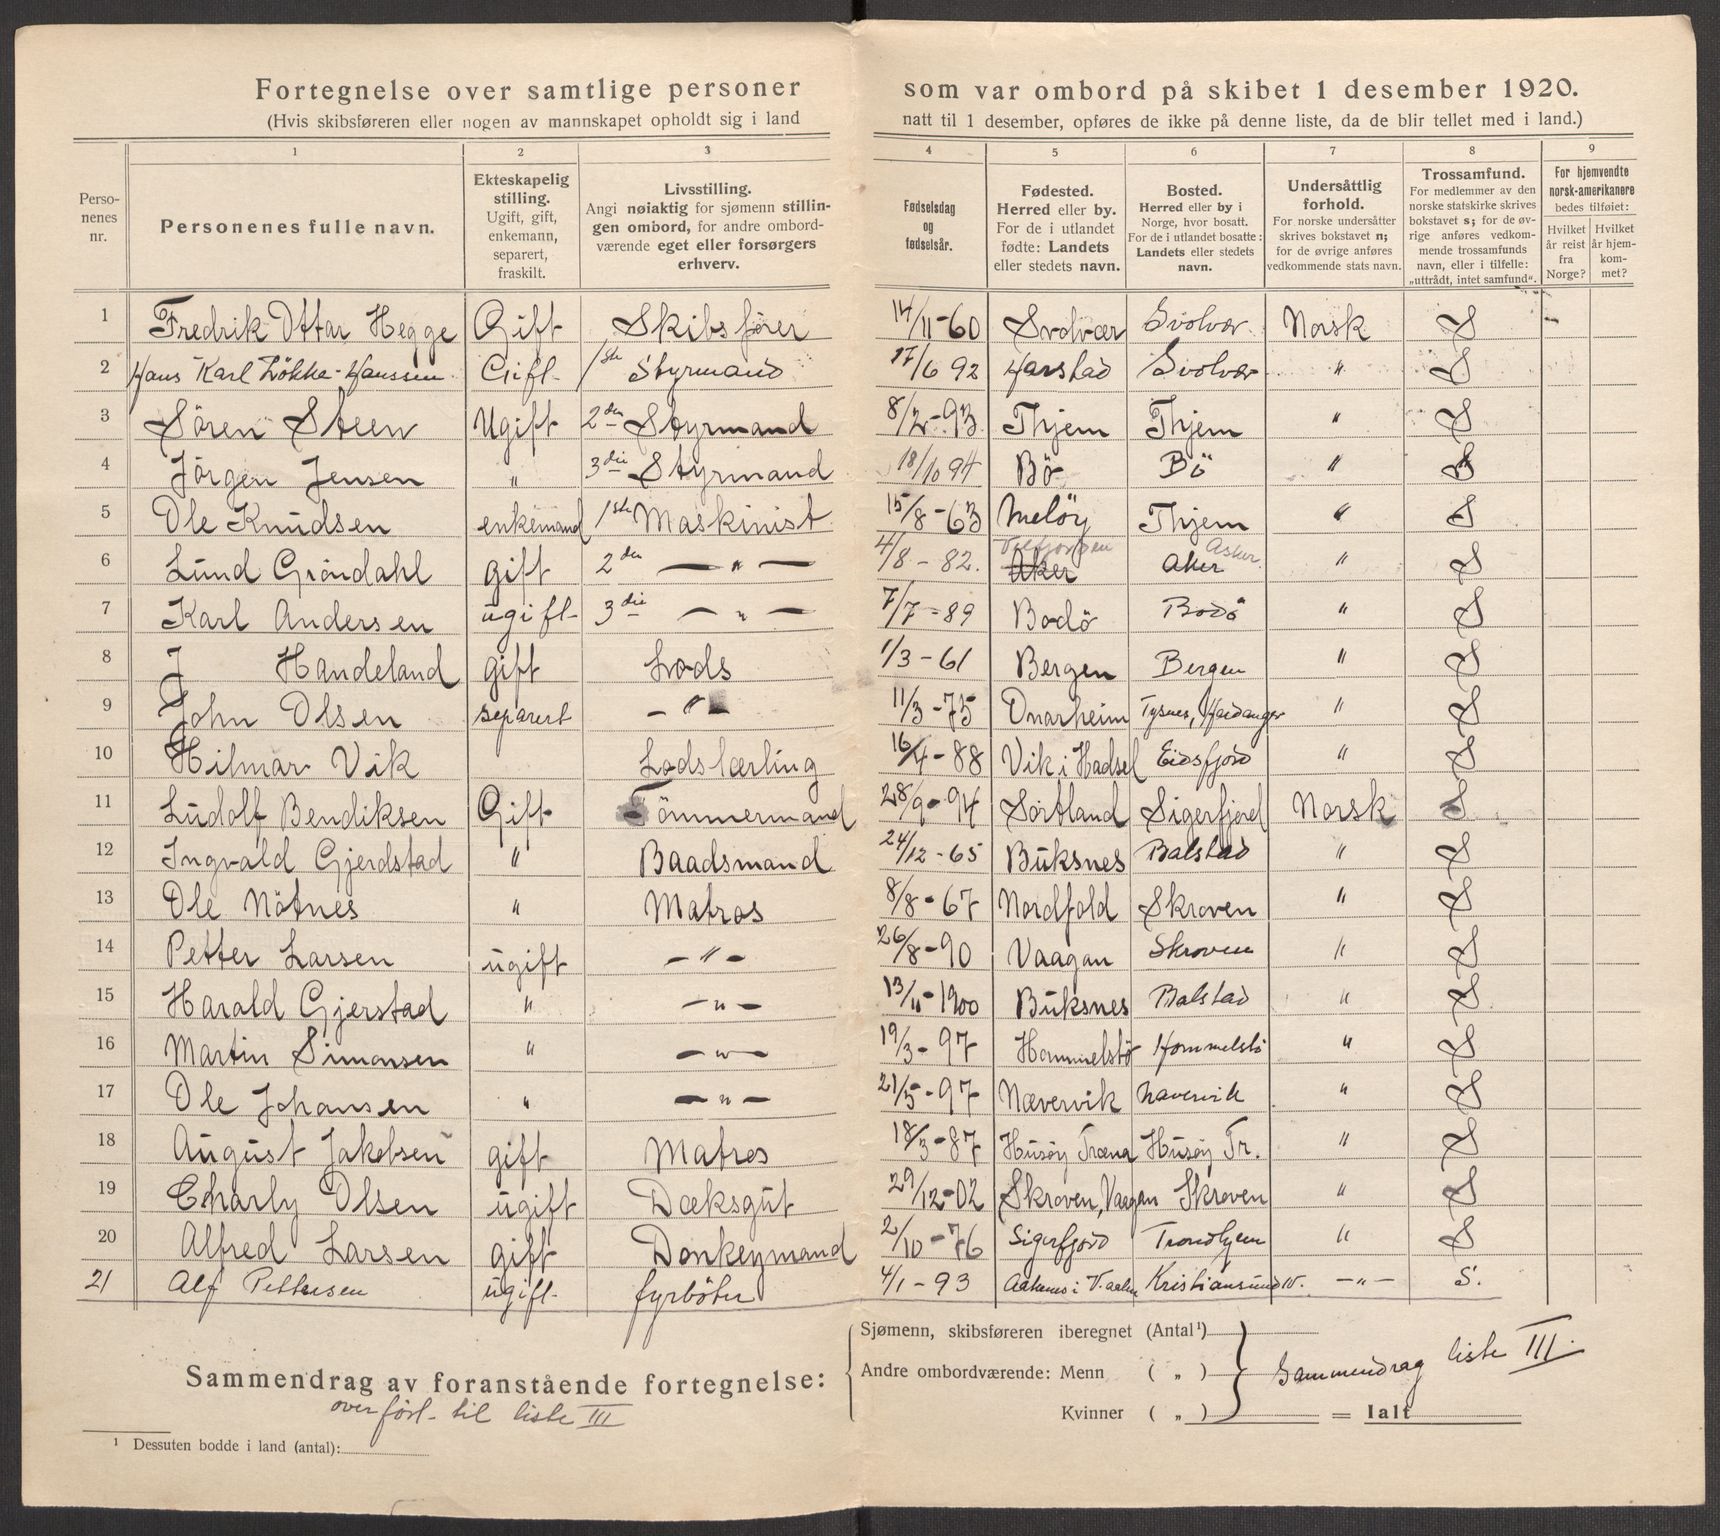 Fortegnelse over samtlige personer som var ombord på skibet 1 desember 1920.
(Hvis skibsføreren eller nogen av mannskapet opholdt sig i land natt til 1 desember, opføres de ikke på denne liste, da de blir tellet med i land.)
1 2 3 4 5 6 7 8 9
Personenes nr.
Personenes fulle navn.
Ekteskapelig stilling. Ugift, gift, enkemann, separert, fraskilt.
Livsstilling. Angi nøiaktig for sjømenn stillingen ombord, for andre ombordværende eget eller forsørgers erhverv.
Fødselsdag og fødselsår.
Fødested. Herred eller by. For de i utlandet fødte: Landets eller stedets navn.
Bosted. Herred eller by i Norge, hvor bosatt. For de i utlandet bosatte: Landets eller stedets navn.
Undersåttlig forhold. For norske undersåtter skrives bokstavet n; for de øvrige anføres vedkommende stats navn.
Trossamfund. For medlemmer av den norske statskirke skrives bokstavet s; for de øvrige anføres vedkommende trossamfunds navn, eller i tilfelle: „uttrådt, intet samfund".
For hjemvendte norsk-amerikanere bedes tilføiet:
Hvilket år reist fra Norge? Hvilket år hjemkommet?
1 Fredrik Ottar Hegge Gift Skibsfører 14/11-60 Svolvær Svolvær Norsk S
2 Hans Karl Løkke-Hanssen Gift 1ste Styrmand 17/6 92 Harstad Svolvær " S
3 Sören Steen Ugift 2den Styrmand 8/2-93 Thjem Thjem " S
4 Jörgen Jensen " 3die Styrmand 18/10 94 Bö Bö " S
5 Ole Knudsen enkemand 1ste Maskinist 15/8-63 Melöy Thjem " S
6 Lund Gröndahl gift 2den — " — 4/8-82. Aker Aker Asker. " S
7 Karl Andersen ugift 3die — " — 7/7-89 Bodö Bodö " S
8 J Handeland gift Lods 1/3-61 Bergen Bergen " S
9 John Olsen separert - " - 11/3-75 Onarheim Tysnes, Hardanger " S
10 Hilmar Vik Lodslærling 16/4-88 Vik i Hadsel Eidsfjord " S
11 Ludolf Bendiksen Gift Tömmermand 28/9-94 Sortland Sigerfjord Norsk S
12 Ingvald Gjerdstad " Baadsmand 24/12-65 Buksnes Balstad " S
13 Ole Nötnes " Matros 8/8-67 Nordfold Skroven " S
14 Petter Larsen ugift - " - 26/8-90 Vaagan Skroven " S
15 Harald Gjerstad " - " - 13/11-1900 Buksnes Balstad " S
16 Martin Simonsen " - " - 19/3-97 Hommelstö Hommelstö " S
17 Ole Johansen " - " - 21/5-97 Nævervik Nævervik " S
18 August Jakobsen gift Matros 18/3-87 Husöy Træna Husöy Tr. " S
19 Charly Olsen ugift Dæksgut 29/12-02 Skroven, Vaagan Skroven " S
20 Alfred Larsen gift Donkeymand 2/10-76 Sigerfjord Trondhjem " S
21 Alf Pettersen ugift fyrböter 4/1-93 Kristiansund N. -"- S.
Sammendrag av foranstående fortegnelse:
overført til liste III
Sjømenn, skibsføreren iberegnet (Antal¹)
Andre ombordværende: Menn ( „ )
Kvinner ( „ ) = Ialt
Sammendrag liste III.
¹ Dessuten bodde i land (antal):